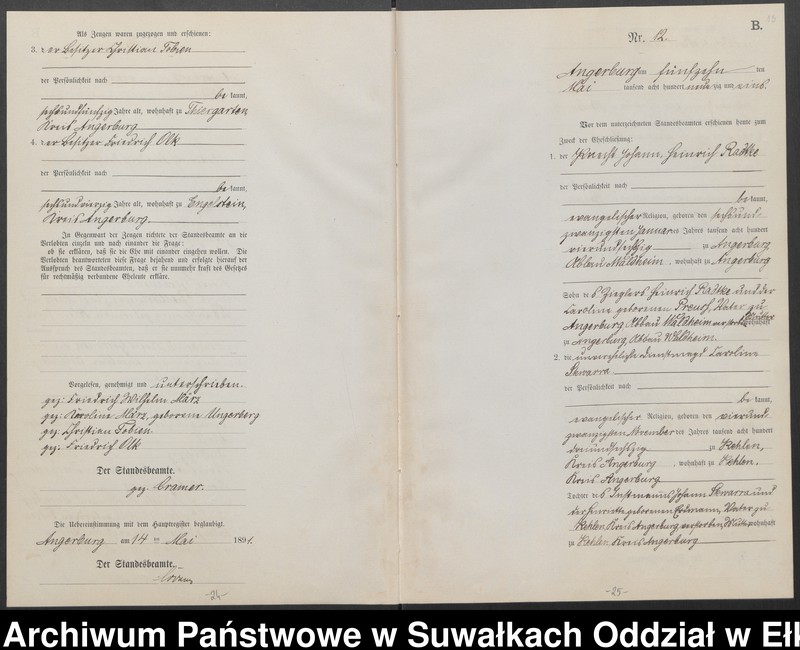 Als Zeugen waren zugezogen und erschienen:
3. der Besitzer Christian Tobien
der Persönlichkeit nach
be kannt,
sechsundfünfzig Jahre alt, wohnhaft zu Thiergarten
Kreis Angerburg
4. der Besitzer Friedrich Olk
der Persönlichkeit nach
be kannt,
sechsundvierzig Jahre alt, wohnhaft zu Engelstein,
Kreis Angerburg.
In Gegenwart der Zeugen richtete der Standesbeamte an die
Verlobten einzeln und nach einander die Frage:
ob sie erklären, daß sie die Ehe mit einander eingehen wollen. Die
Verlobten beantworteten diese Frage bejahend und erfolgte hierauf der
Ausspruch des Standesbeamten, daß er sie nunmehr kraft des Gesetzes
für rechtmäßig verbundene Eheleute erkläre.
Vorgelesen, genehmigt und unterschrieben.
gez: Friedrich Wilhelm März
gez: Karoline März, geborene Ungerberg
gez: Christian Tobien
gez: Friedrich Olk
Der Standesbeamte.
gez. Cramer.
Die Uebereinstimmung mit dem Hauptregister beglaubigt.
Angerburg am 14 ten Mai 1891.
Der Standesbeamte.
-24-
B.
Nr. 12.
Angerburg am fünfzehn ten
Mai tausend acht hundert neunzig und eins.
Vor dem unterzeichneten Standesbeamten erschienen heute zum
Zweck der Eheschließung:
1. der Knecht Johann Heinrich Radtke
der Persönlichkeit nach
be kannt,
evangelischer Religion, geboren den sechsund
zwanzigsten Januar des Jahres tausend acht hundert
vierundsechzig zu Angerburg
Abbau Waldheim, wohnhaft zu Angerburg
Sohn des Zieglers Heinrich Radtke und der
Caroline geborenen Preuss, Vater zu
Angerburg Abbau Waldheim verstorben Mutter wohnhaft
zu Angerburg, Abbau Waldheim.
2. die unverehelichte Dienstmagd Caroline
Skwarra
der Persönlichkeit nach
be kannt,
evangelischer Religion, geboren den vierund
zwanzigsten November des Jahres tausend acht hundert
dreiundsechzig zu Kehlen,
Kreis Angerburg, wohnhaft zu Kehlen.
Kreis Angerburg
Tochter des Instmanns Johann Skwarra und
der Henriette geborenen Erdmann, Vater zu
Kehlen, Kreis Angerburg verstorben, Mutter wohnhaft
zu Kehlen, Kreis Angerburg
-25-
Archiwum Państwowe w Suwałkach Oddział w Ełk